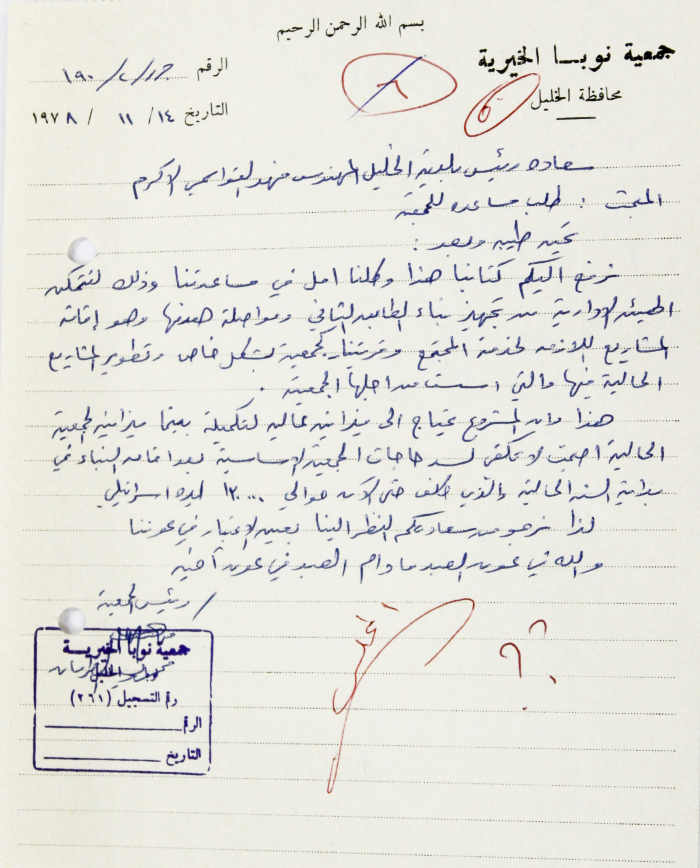 بسم الله الرحمن الرحيم
جمعية نوبا الخيرية
محافظة الخليل
الرقم ج ر/٢/١٩٠
التاريخ ١٤/ ١١ / ١٩٧٨
٦
٥
سعاده رئيس بلدية الخليل المهندس فهد القواسمي الاكرم
المبحث : طلب مساعده للجمعية
تحيه طيبه وبعد :
نرفع اليكم كتابنا هذا وكلنا امل في مساعدتنا وذلك لتتمكن
الهيئه الادارية من تجهيز بناء الطابق الثاني ومواصلة هدفها وهو إقامة
المشاريع اللازمه لخدمة المجتمع وقريتنا بشكل خاص وتطوير المشاريع
الحالية فيها والتي اسست من اجلها الجمعية .
هذا وان المشروع يحتاج الى ميزانيه عاليه لتكميله بينما ميزانيه الجمعية
الحالية اصبحت لا تكفي لسد حاجات الجمعية الاساسية بعد اقامه البناء في
بداية السنه الحالية والذي كلف حتى الآن حوالي ١٢٠٠٠٠ ليره اسرائيلي
لذا نرجو من سعادتكم النظر الينا بعين الاعتبار في عوننا
والله في عون العبد ما دام العبد في عون أخيه
رئيس الجمعية
جمعية نوبا الخيرية
الخليل
رقم التسجيل (٢٦١)
الرقم
التاريخ
؟؟